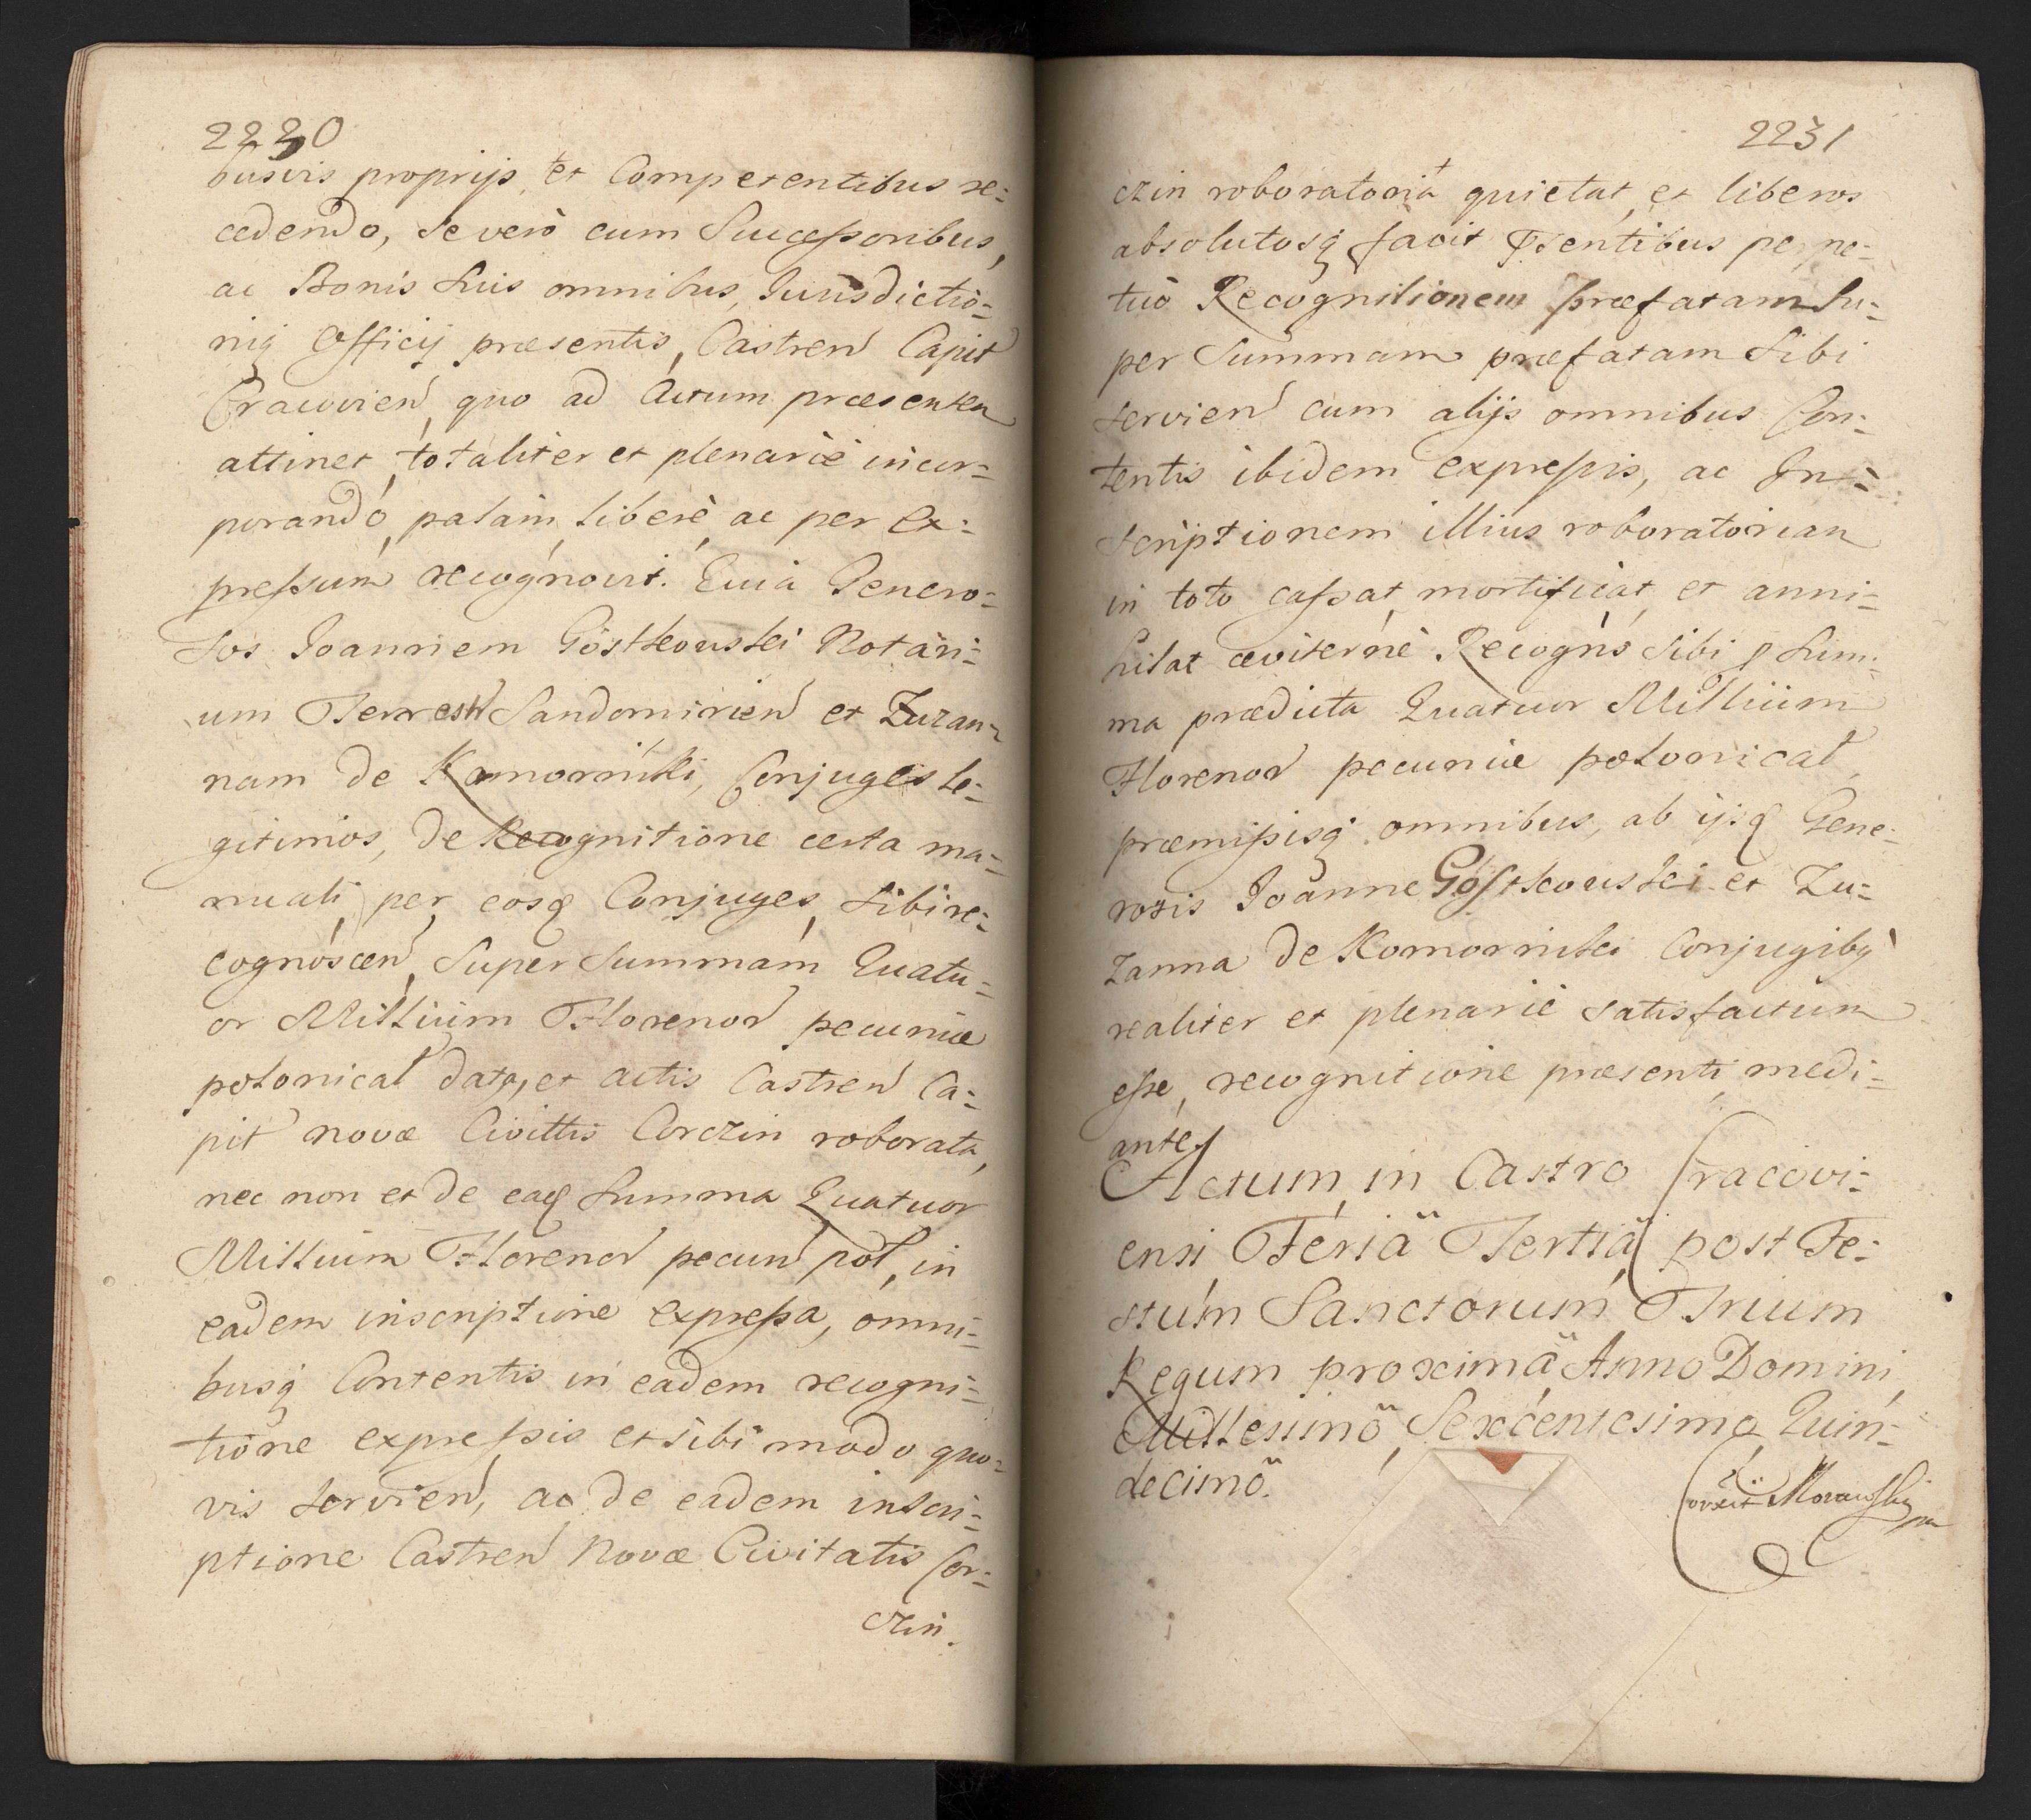 2230
busvis proprijs et Competentibus re=
cedendo, se vero cum Successoribus,
ac Bonis Suis omnibus, Jurisdictio=
niq Officij praesentis, Castren Capit
Cracovien quo ad Actum praesentem
attinet, totaliter et plenariè incor=
porando, palàm, liberè ac per ex=
pressum recognovit. Quia Genero=
sos Joannem Gostkowski Notari=
um Terrestr Sandomirien et Zuzan=
nam de Komorniki, Conjuges le=
gitimos, de Recognitione certa ma=
nuali per eosq Conjuges, sibi re=
cognoscen, Super Summam Quatu=
or Millium Florenor pecuniae
polonical data, et actis Castren Ca=
pit novae Civittis Corczin roborata,
nec non et de eaq Summa Quatuor
Millium Florenor pecun pol, in
eadem inscriptione expressa, omni=
busq Contentis in eadem recogni=
tione expressis et sibi modo quo=
vis servien, ac de eadem inscri=
ptione Castren Novae Civitatis Cor=
czin.
2231
czin roboratoria quietat, et liberos
absolutosq facit psentibus perpe=
tuò Recognitionem praefatam Su=
per Summam praefatam Sibi
servien cum alijs omnibus Con=
tentis ibidem expressis, ac In=
scriptionem illius roboratoriam
in toto cassat, mortificat, et anni=
hilat aeviternè Recogns sibi p Sum=
ma praedicta Quatuor Millium
Florenor pecuniae polonical,
praemissisq omnibus, ab ijsq Gene=
rosis Joanne Gostkowski et Zu=
zanna de Komorniki Conjugibq
realiter et plenariè satisfactum
esse, recognitione praesenti medi=
ante.
Actum in Castro Cracovi=
ensi Feriä Tertiä post Fe=
stum Sanctorum Trium
Regum proximä Anno Domini
Millesimö Sexcentesimo Quin=
decimö.
Correxit Morawski